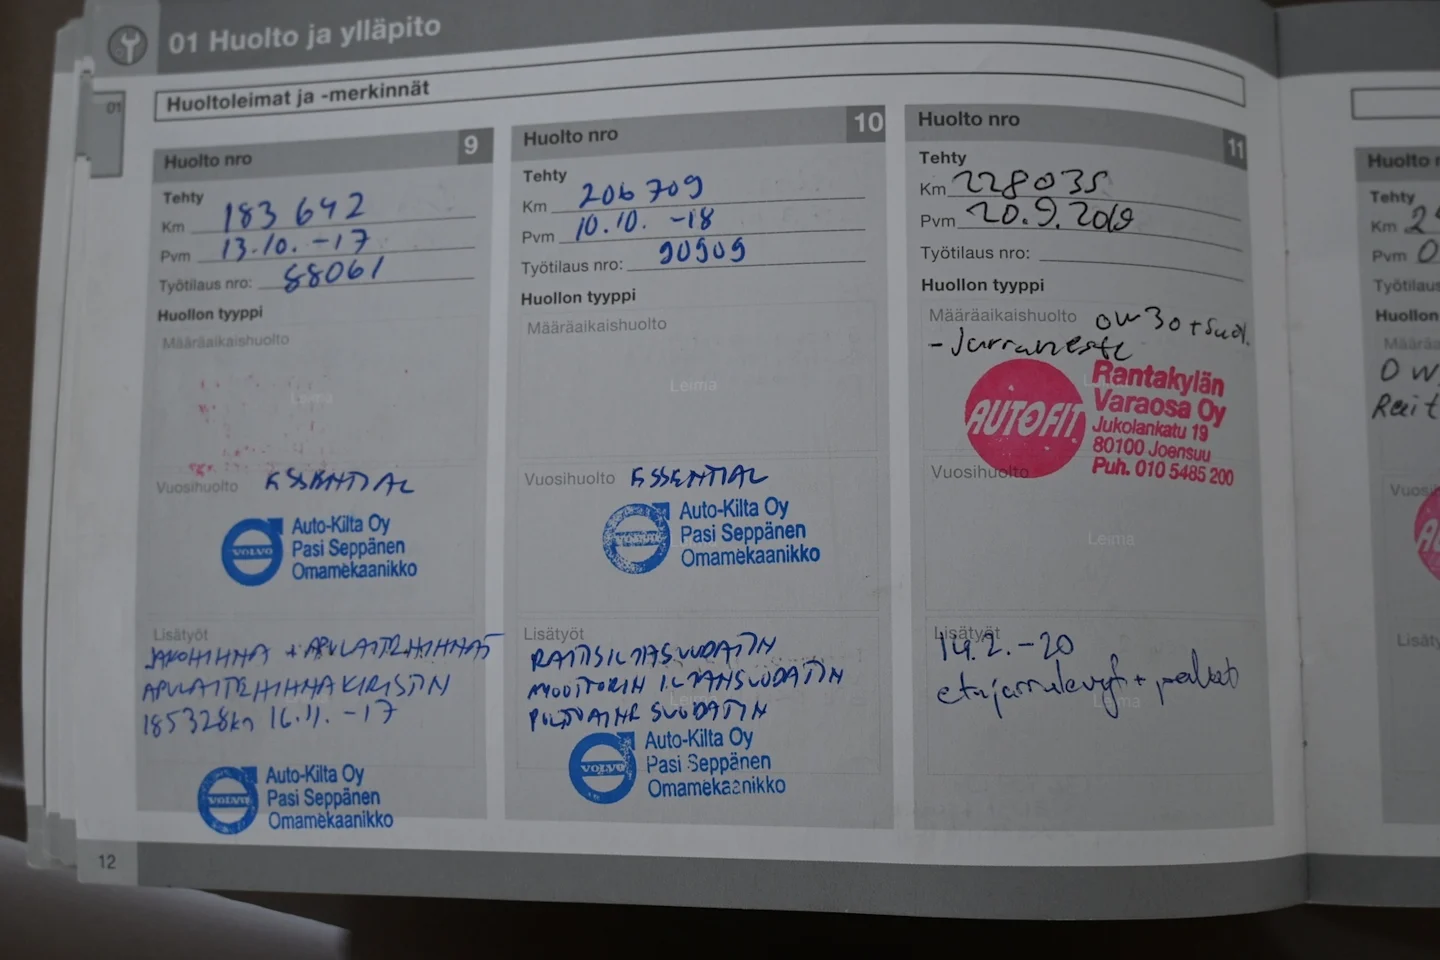 01 Huolto ja ylläpito
01
Huoltoleimat ja -merkinnät
Huolto nro 9
Tehty
Km 183 642
Pvm 13.10. -17
Työtilaus nro: 88061
Huollon tyyppi
Määräaikaishuolto
Leima
Vuosihuolto ESSENTIAL
VOLVO
Auto-Kilta Oy
Pasi Seppänen
Omamekaanikko
Lisätyöt
JAKOHIHNA + APULAITEHIHNAT
APULAITEHIHNAKIRISTIN
185328km 16.11. -17
VOLVO
Auto-Kilta Oy
Pasi Seppänen
Omamekaanikko
12
Huolto nro 10
Tehty
Km 206 709
Pvm 10.10. -18
Työtilaus nro: 90909
Huollon tyyppi
Määräaikaishuolto
Leima
Vuosihuolto ESSENTIAL
VOLVO
Auto-Kilta Oy
Pasi Seppänen
Omamekaanikko
Lisätyöt
RAITISILMASUODATIN
MOOTTORIN ILMANSUODATIN
POLTTOAINE SUODATIN
Leima
VOLVO
Auto-Kilta Oy
Pasi Seppänen
Omamekaanikko
Huolto nro 11
Tehty
Km 228035
Pvm 20.9.2019
Työtilaus nro:
Huollon tyyppi
Määräaikaishuolto 0w30+suod.
- Jarruneste
AUTOFIT
Rantakylän
Varaosa Oy
Jukolankatu 19
80100 Joensuu
Puh. 010 5485 200
Vuosihuolto
Leima
Lisätyöt
14.2.-20
etujarrulevyt + palat
Leima
Huolto
Tehty
Km 2
Pvm 0
Työtilaus
Huollon
Määräa
0w
Rait
Vuosi
Lisäty